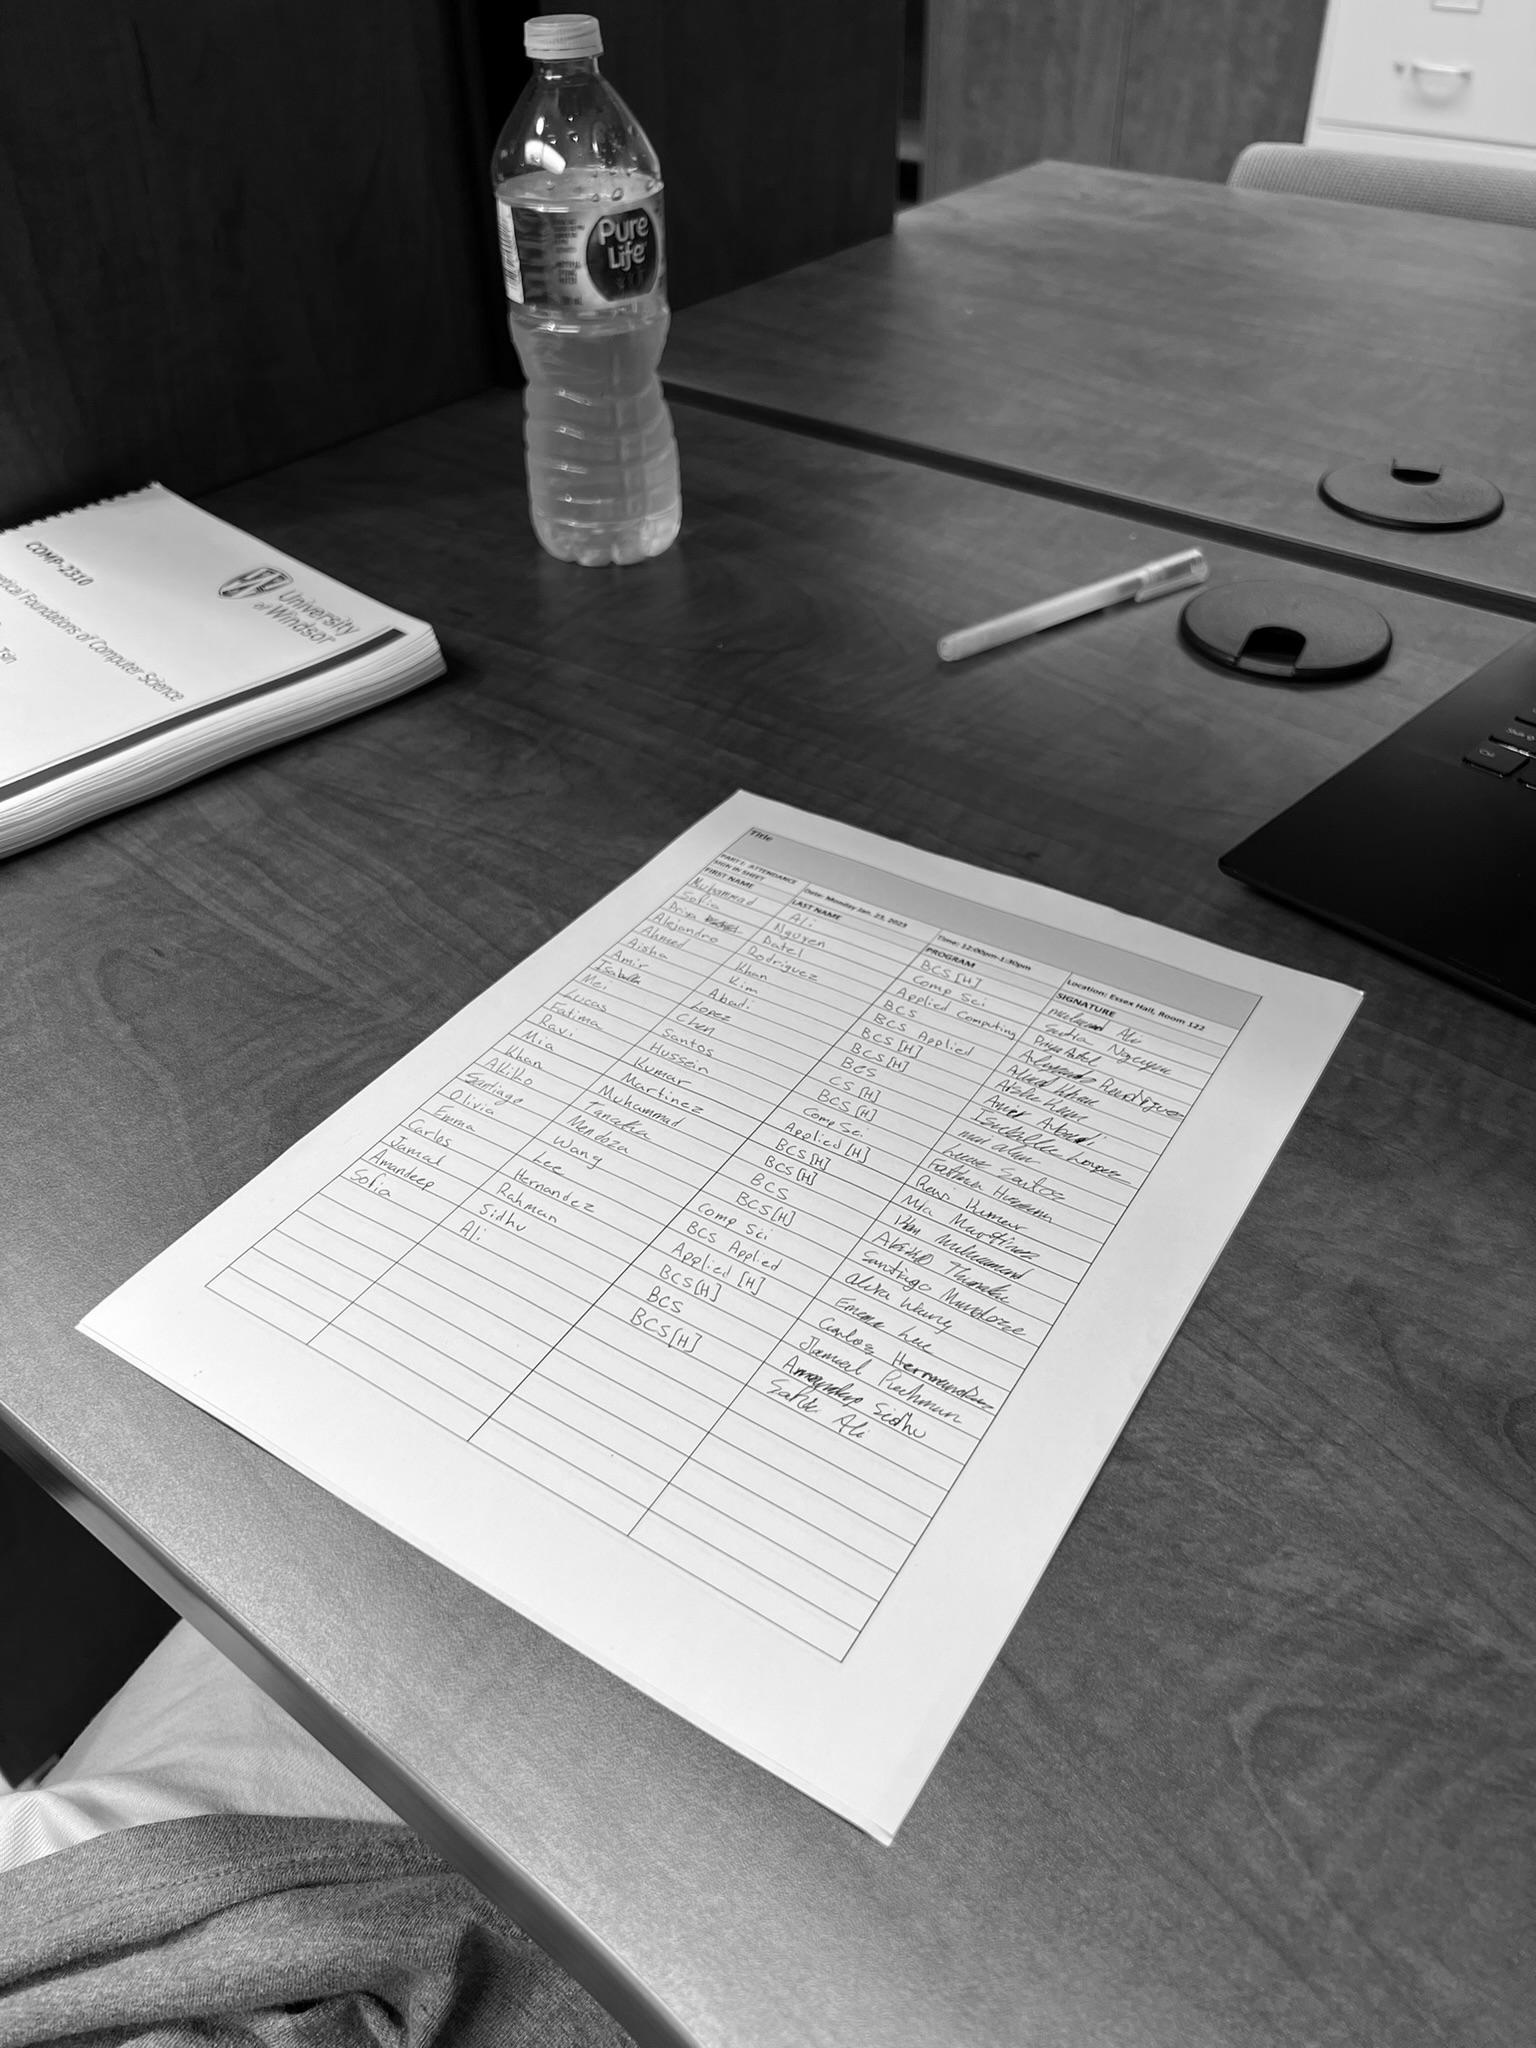 Pure
Life
COMP-2310
University
of Windsor
Foundations of Computer Science
Tsin
Title
PART I: ATTENDANCE
SIGN IN SHEET Date: Monday Jan. 23, 2023 Time: 12:00pm-1:30pm Location: Essex Hall, Room 122
FIRST NAME LAST NAME PROGRAM SIGNATURE
Muhammad Ali BCS [H] Ali
Sofia Nguyen Comp Sci Sofia Nguyen
Priya Patel Applied Computing Priya Patel
Alejandro Rodriguez BCS Alejandro Rodriguez
Ahmed Khan BCS Applied Ahmed Khan
Aisha Kim BCS [H] Aisha Kim
Amir Abadi BCS [H] Amir Abadi
Isabella Lopez BCS Isabella Lopez
Mei Chen CS [H] Mei Chen
Lucas Santos BCS [H] Lucas Santos
Fatima Hussein Comp Sci Fatima Hussein
Ravi Kumar Applied [H] Ravi Kumar
Mia Martinez BCS [H] Mia Martinez
Khan Muhammad BCS [H] Khan Muhammad
Akiko Tanaka BCS Akiko Tanaka
Santiago Mendoza BCS[H] Santiago Mendoza
Olivia Wang Comp Sci Olivia Wang
Emma Lee BCS Applied Emma Lee
Carlos Hernandez Applied [H] Carlos Hernandez
Jamal Rahman BCS[H] Jamal Rahman
Amandeep Sidhu BCS Amandeep Sidhu
Sofia Ali BCS[H] Sofia Ali